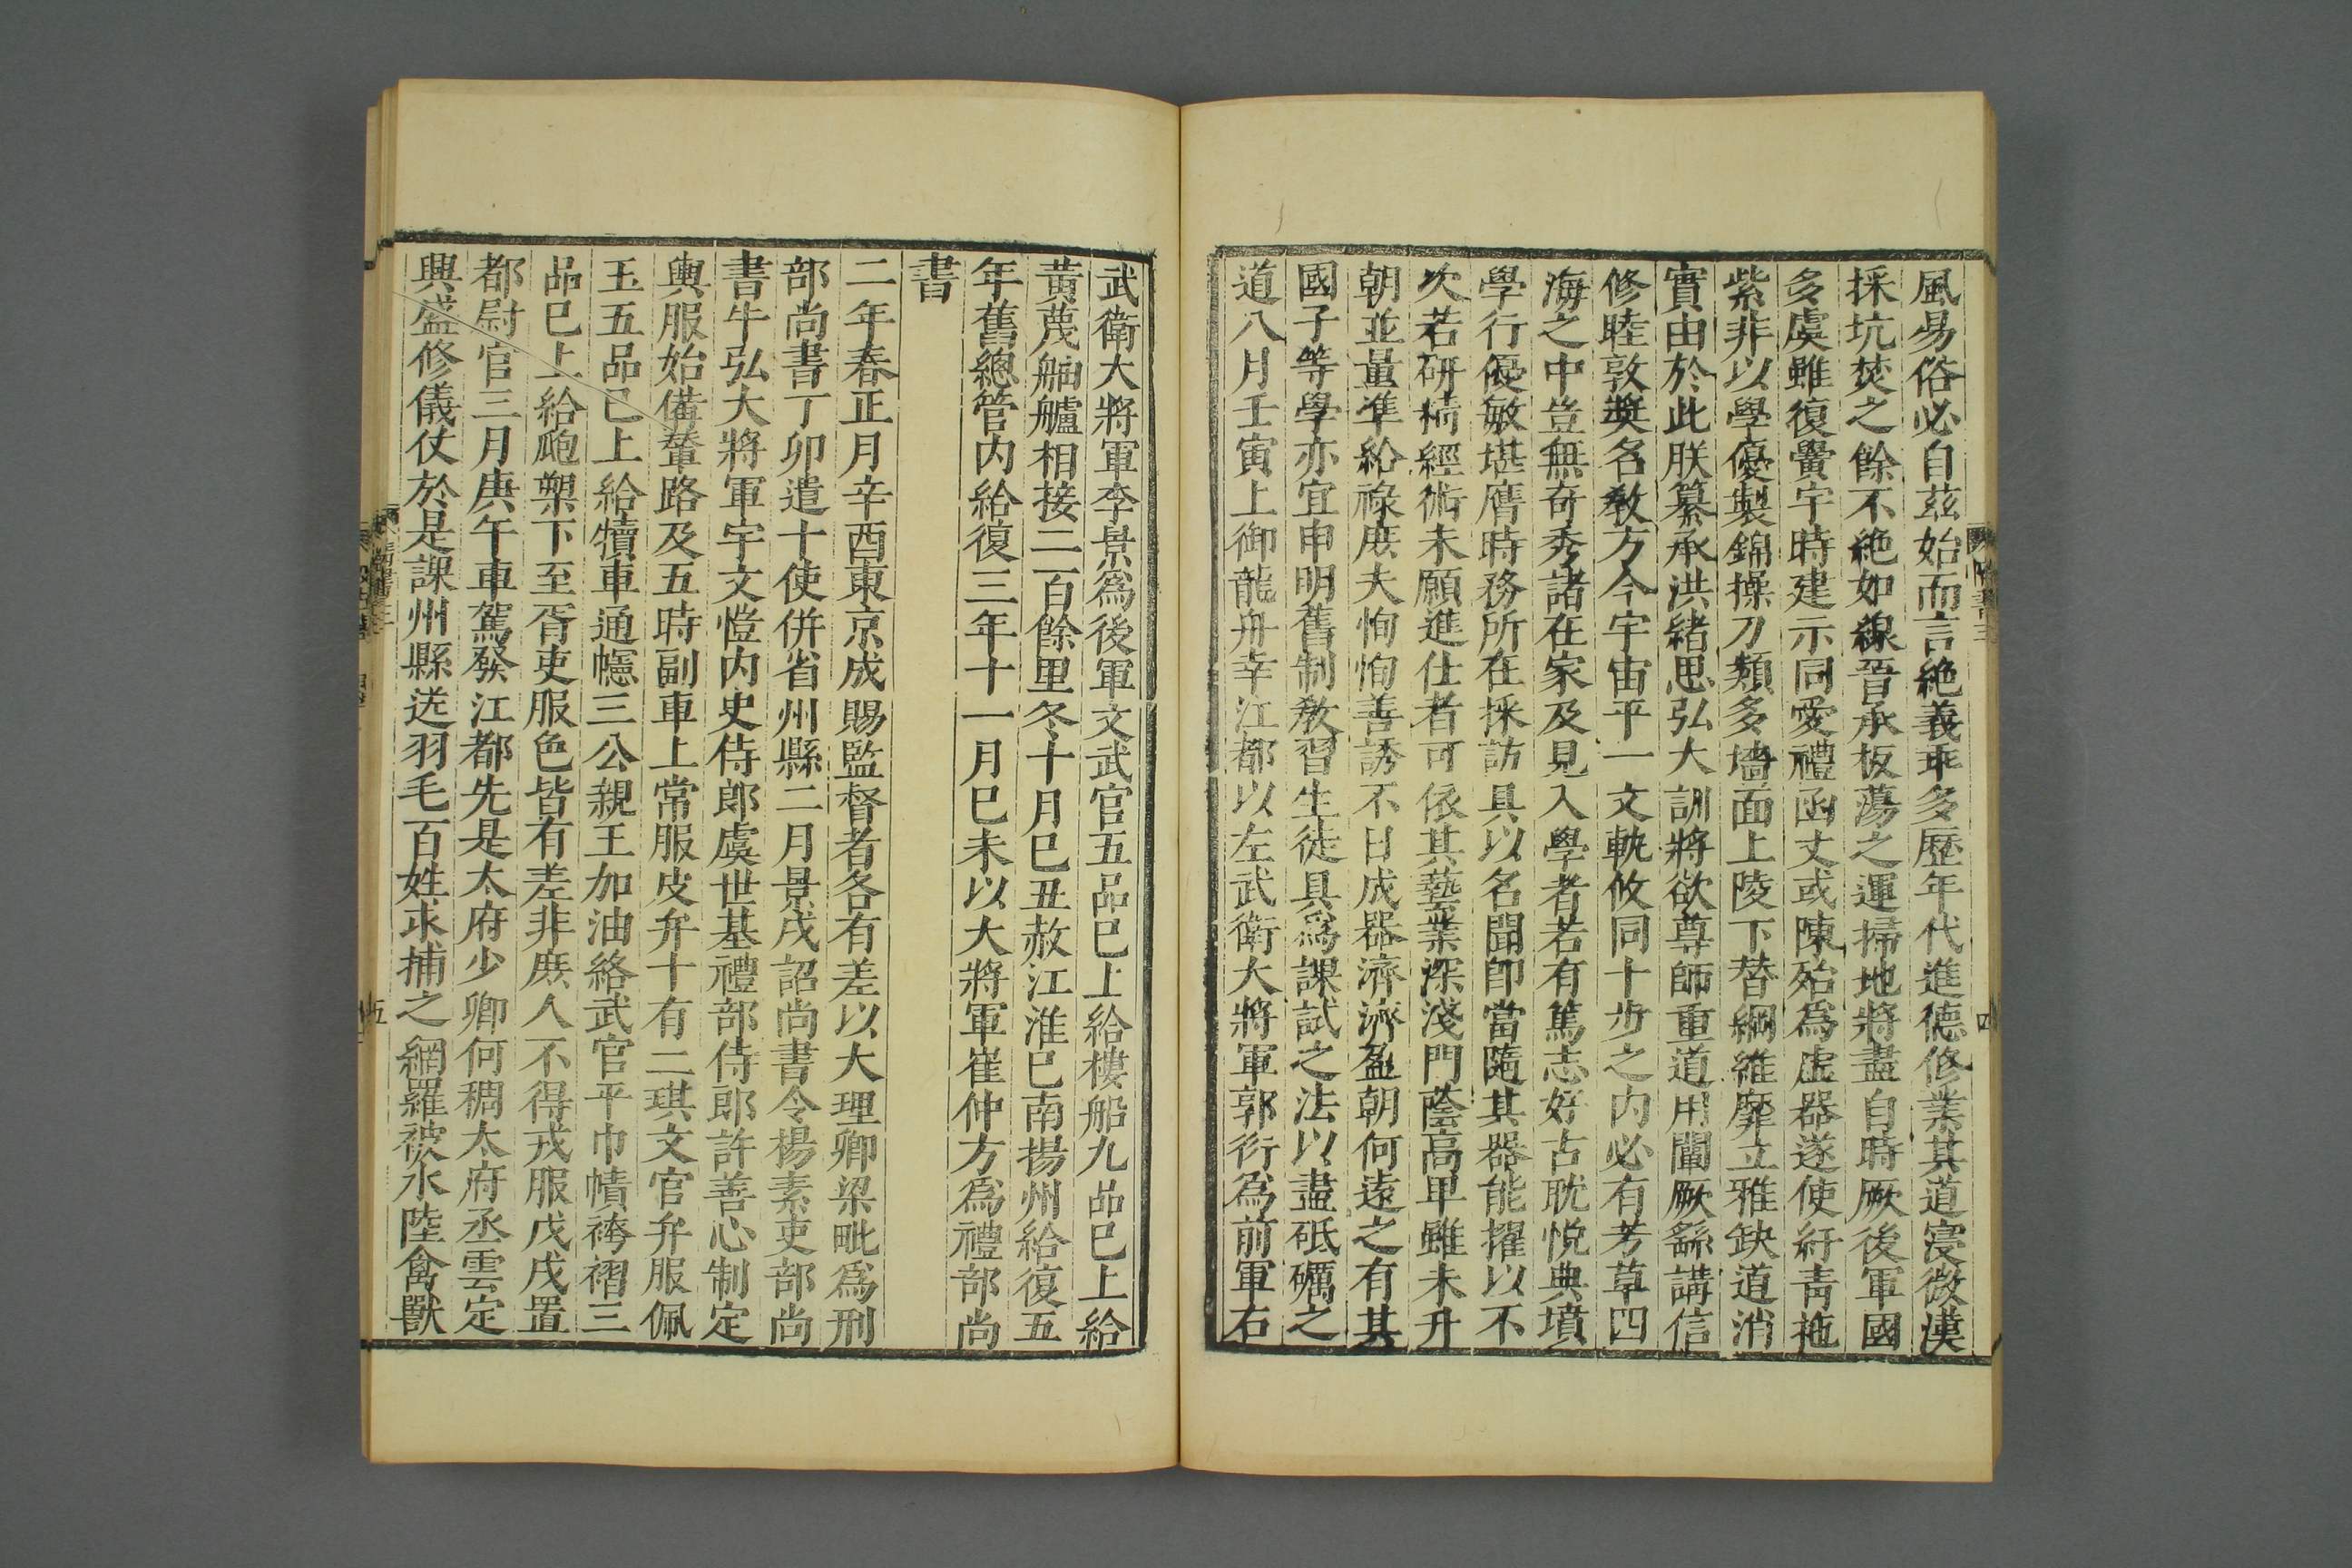 風易俗必自茲始而言絶義乖多歷年代進德修業其道寖微漢
採坑焚之餘不絶如線晉承板蕩之運掃地將盡自時厥後軍國
多虞雖復黌宇時建示同愛禮函丈或陳殆爲虛器遂使紆靑拖
紫非以學優製錦操刀類多墻面上陵下替綱維靡立雅缺道消
實由於此朕纂承洪緒思弘大訓將欲尊師重道用闡厥繇講信
修睦敦奬名敎方今宇宙平一文軌攸同十步之內必有芳草四
海之中豈無奇秀諸在家及見入學者若有篤志好古耽悅典墳
學行優敏堪膺時務所在採訪具以名聞即當隨其器能擢以不
次若研精經術未願進仕者可依其藝業深淺門蔭高卑雖未升
朝並量準給祿庶夫恂恂善誘不日成器濟濟盈朝何遠之有其
國子等學亦宜申明舊制敎習生徒具爲課試之法以盡砥礪之
道八月壬寅上御龍舟幸江都以左武衛大將軍郭衍爲前軍右
武衛大將軍李景爲後軍文武官五品已上給樓船九品已上給
黃蔑舳艫相接二百餘里冬十月己丑赦江淮已南揚州給復五
年舊總管內給復三年十一月己未以大將軍崔仲方爲禮部尚
書
二年春正月辛酉東京成賜監督者各有差以大理卿梁毗爲刑
部尚書丁卯遣十使併省州縣二月景戌詔尚書令楊素吏部尚
書牛弘大將軍宇文愷內史侍郎虞世基禮部侍郎許善心制定
輿服始備輦路及五時副車上常服皮弁十有二琪文官弁服佩
玉五品已上給犢車通幰三公親王加油絡武官平巾幘袴褶三
品已上給瓟槊下至胥吏服色皆有差非庶人不得戎服戊戌置
都尉官三月庚午車駕發江都先是太府少卿何稠太府丞雲定
興盛修儀仗於是課州縣送羽毛百姓求捕之網羅被水陸禽獸
五